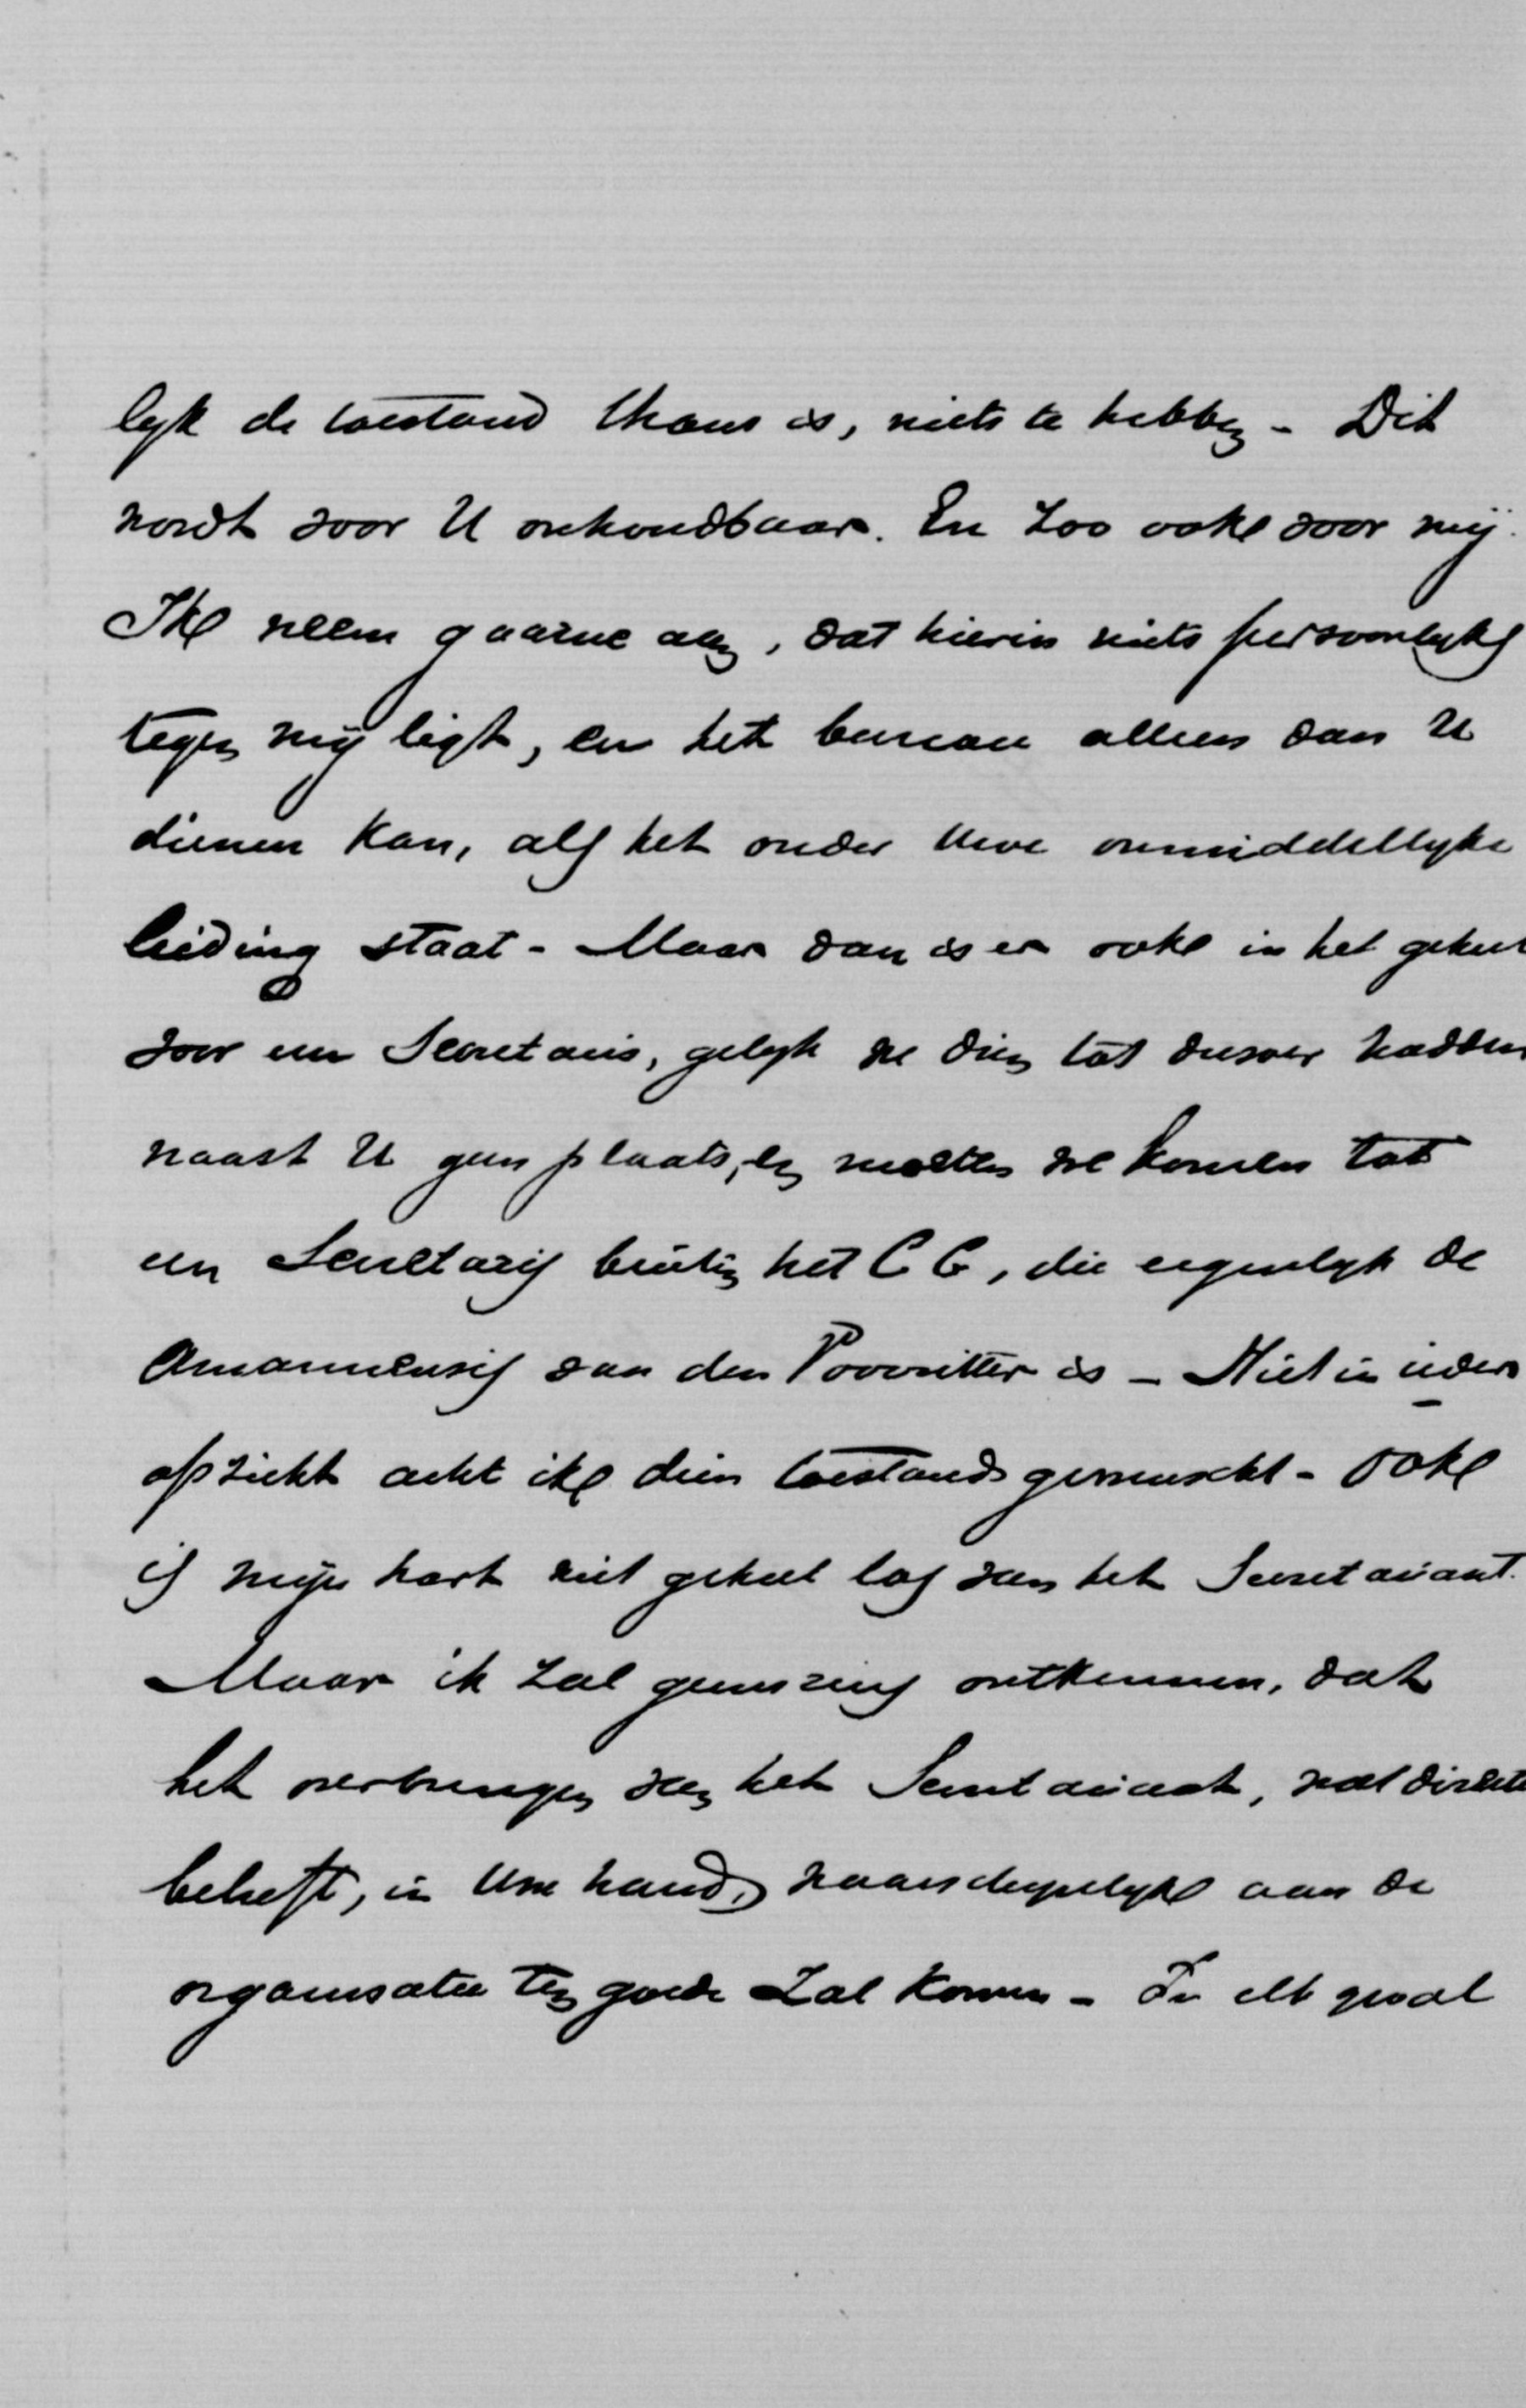 lyk de toestand thans is, niets te hebben - Dit
wordt voor U onhoudbaar. En zoo ook voor mij.
Ik neem gaarne aan, dat hierin niets persoonlyks
tegen mij ligt, en het bureau alleen dan U
dienen kan, als het onder Uwe onmiddellyke
leiding staat - Maar dan is er ook in het geheel
voor een Secretaris, gelyk we dien tot dusver hadden
naast U geen plaats, en moeten we komen tot
een Secretaris buiten het CC, die eigenlyk de
Amanuensis van den Voorzitter is - Niet in ieder
opzicht acht ik dien toestand gewenscht - Ook
is mijn hart niet geheel los van het Secretariaat.
Maar ik zal geenszins ontkennen, dat
het overbrengen van het Secretariaat, wat directe
betreft, in Uwe hand, waarschynlyk aan de
organisatie ten goede zal komen - In elk geval